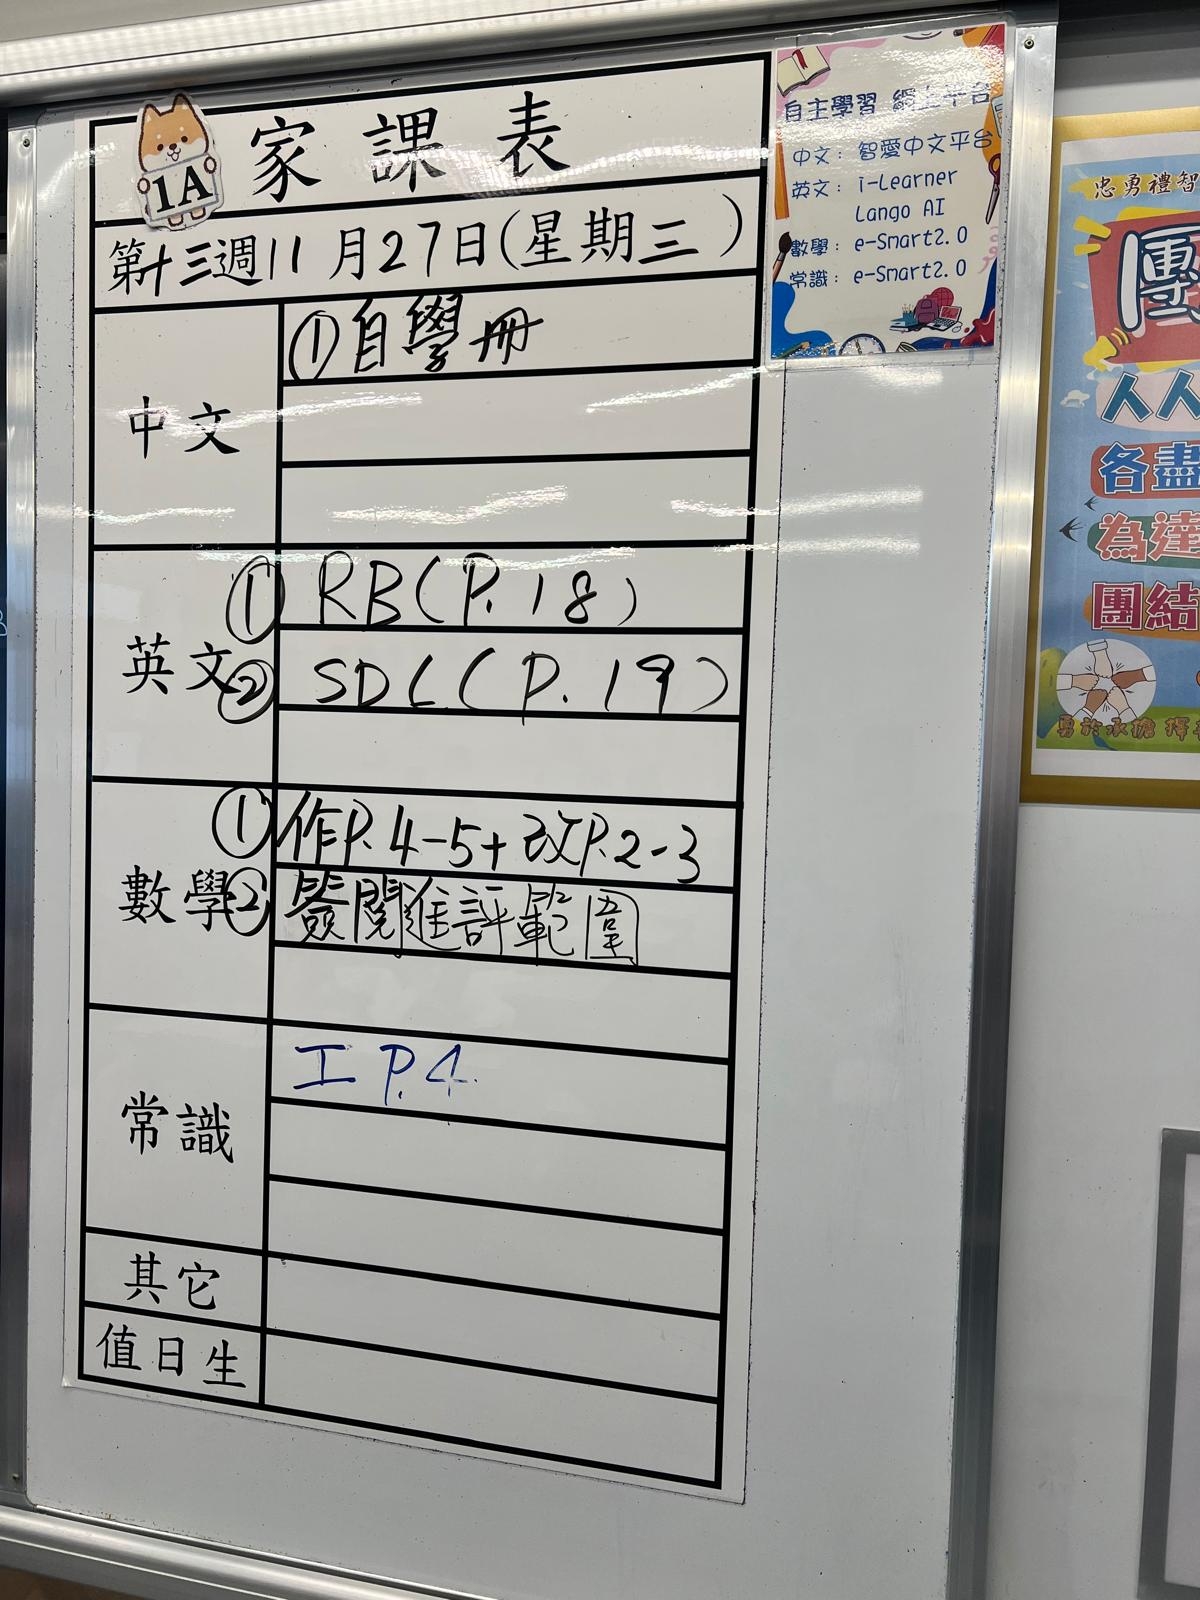 1A
家課表
第十三週11月27日(星期三)
中文
①自學冊
英文
① RB(P.18)
② SDL(P.19)
數學
①作P.4-5+改P.2-3
②簽閱進評範圍
常識
工 P.4
其它
值日生
自主學習 網上平台
中文：智愛中文平台
英文：i-Learner
Lango AI
數學：e-Smart2.0
常識：e-Smart2.0
忠勇禮智
團
人人
各盡
為達
團結
勇於承擔